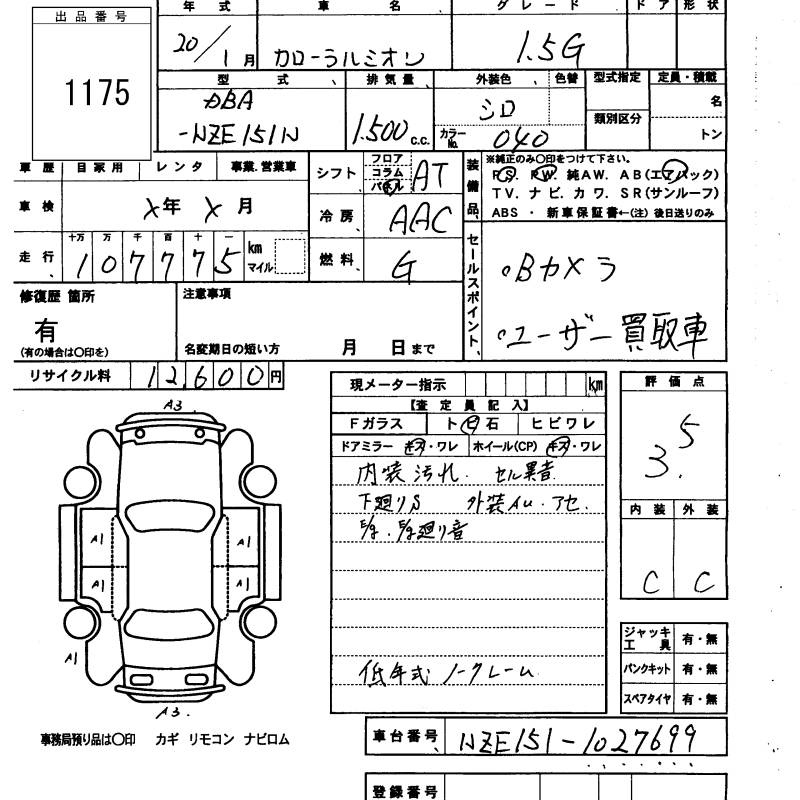 年式 車名 グレード ドア 形状
出品番号
1175
20/1月 カローラルミオン 1.5G
型式 排気量 外装色 色替 型式指定 定員・積載
DBA
-NZE151N
1.500 c.c.
シロ
カラーNo. 040
類別区分
名
トン
車歴 自家用 レンタ 事業.営業車
シフト フロア コラム パネル AT
装備品
※純正のみ〇印をつけて下さい。
PS. PW. 純AW. AB(エアバック)
TV. ナビ. カワ. SR(サンルーフ)
ABS ・ 新車保証書←(注) 後日送りのみ
車検 X年 X月
冷房 AAC
走行 十万 万 千 百 十 一 km マイル
107775
燃料 G
セールスポイント
Bカメラ
ユーザー買取車
修復歴 箇所
有
(有の場合は〇印を)
注意事項
名変期日の短い方 月 日まで
リサイクル料 12,600円
現メーター指示 km
【査定員記入】
Fガラス ト ビ 石 ヒビワレ
ドアミラー キズ・ワレ ホイール(CP) キズ・ワレ
内装汚れ. セル異音
下廻りS 外装AU.アセ.
廻り音
低年式 ノークレーム
評価点
3.5
内装 外装
C C
A3
A1 A1
A1 A1
A1
A3.
ジャッキ工具 有・無
パンクキット 有・無
スペアタイヤ 有・無
事務局預り品は〇印 カギ リモコン ナビロム
車台番号 NZE151-1027699
登録番号